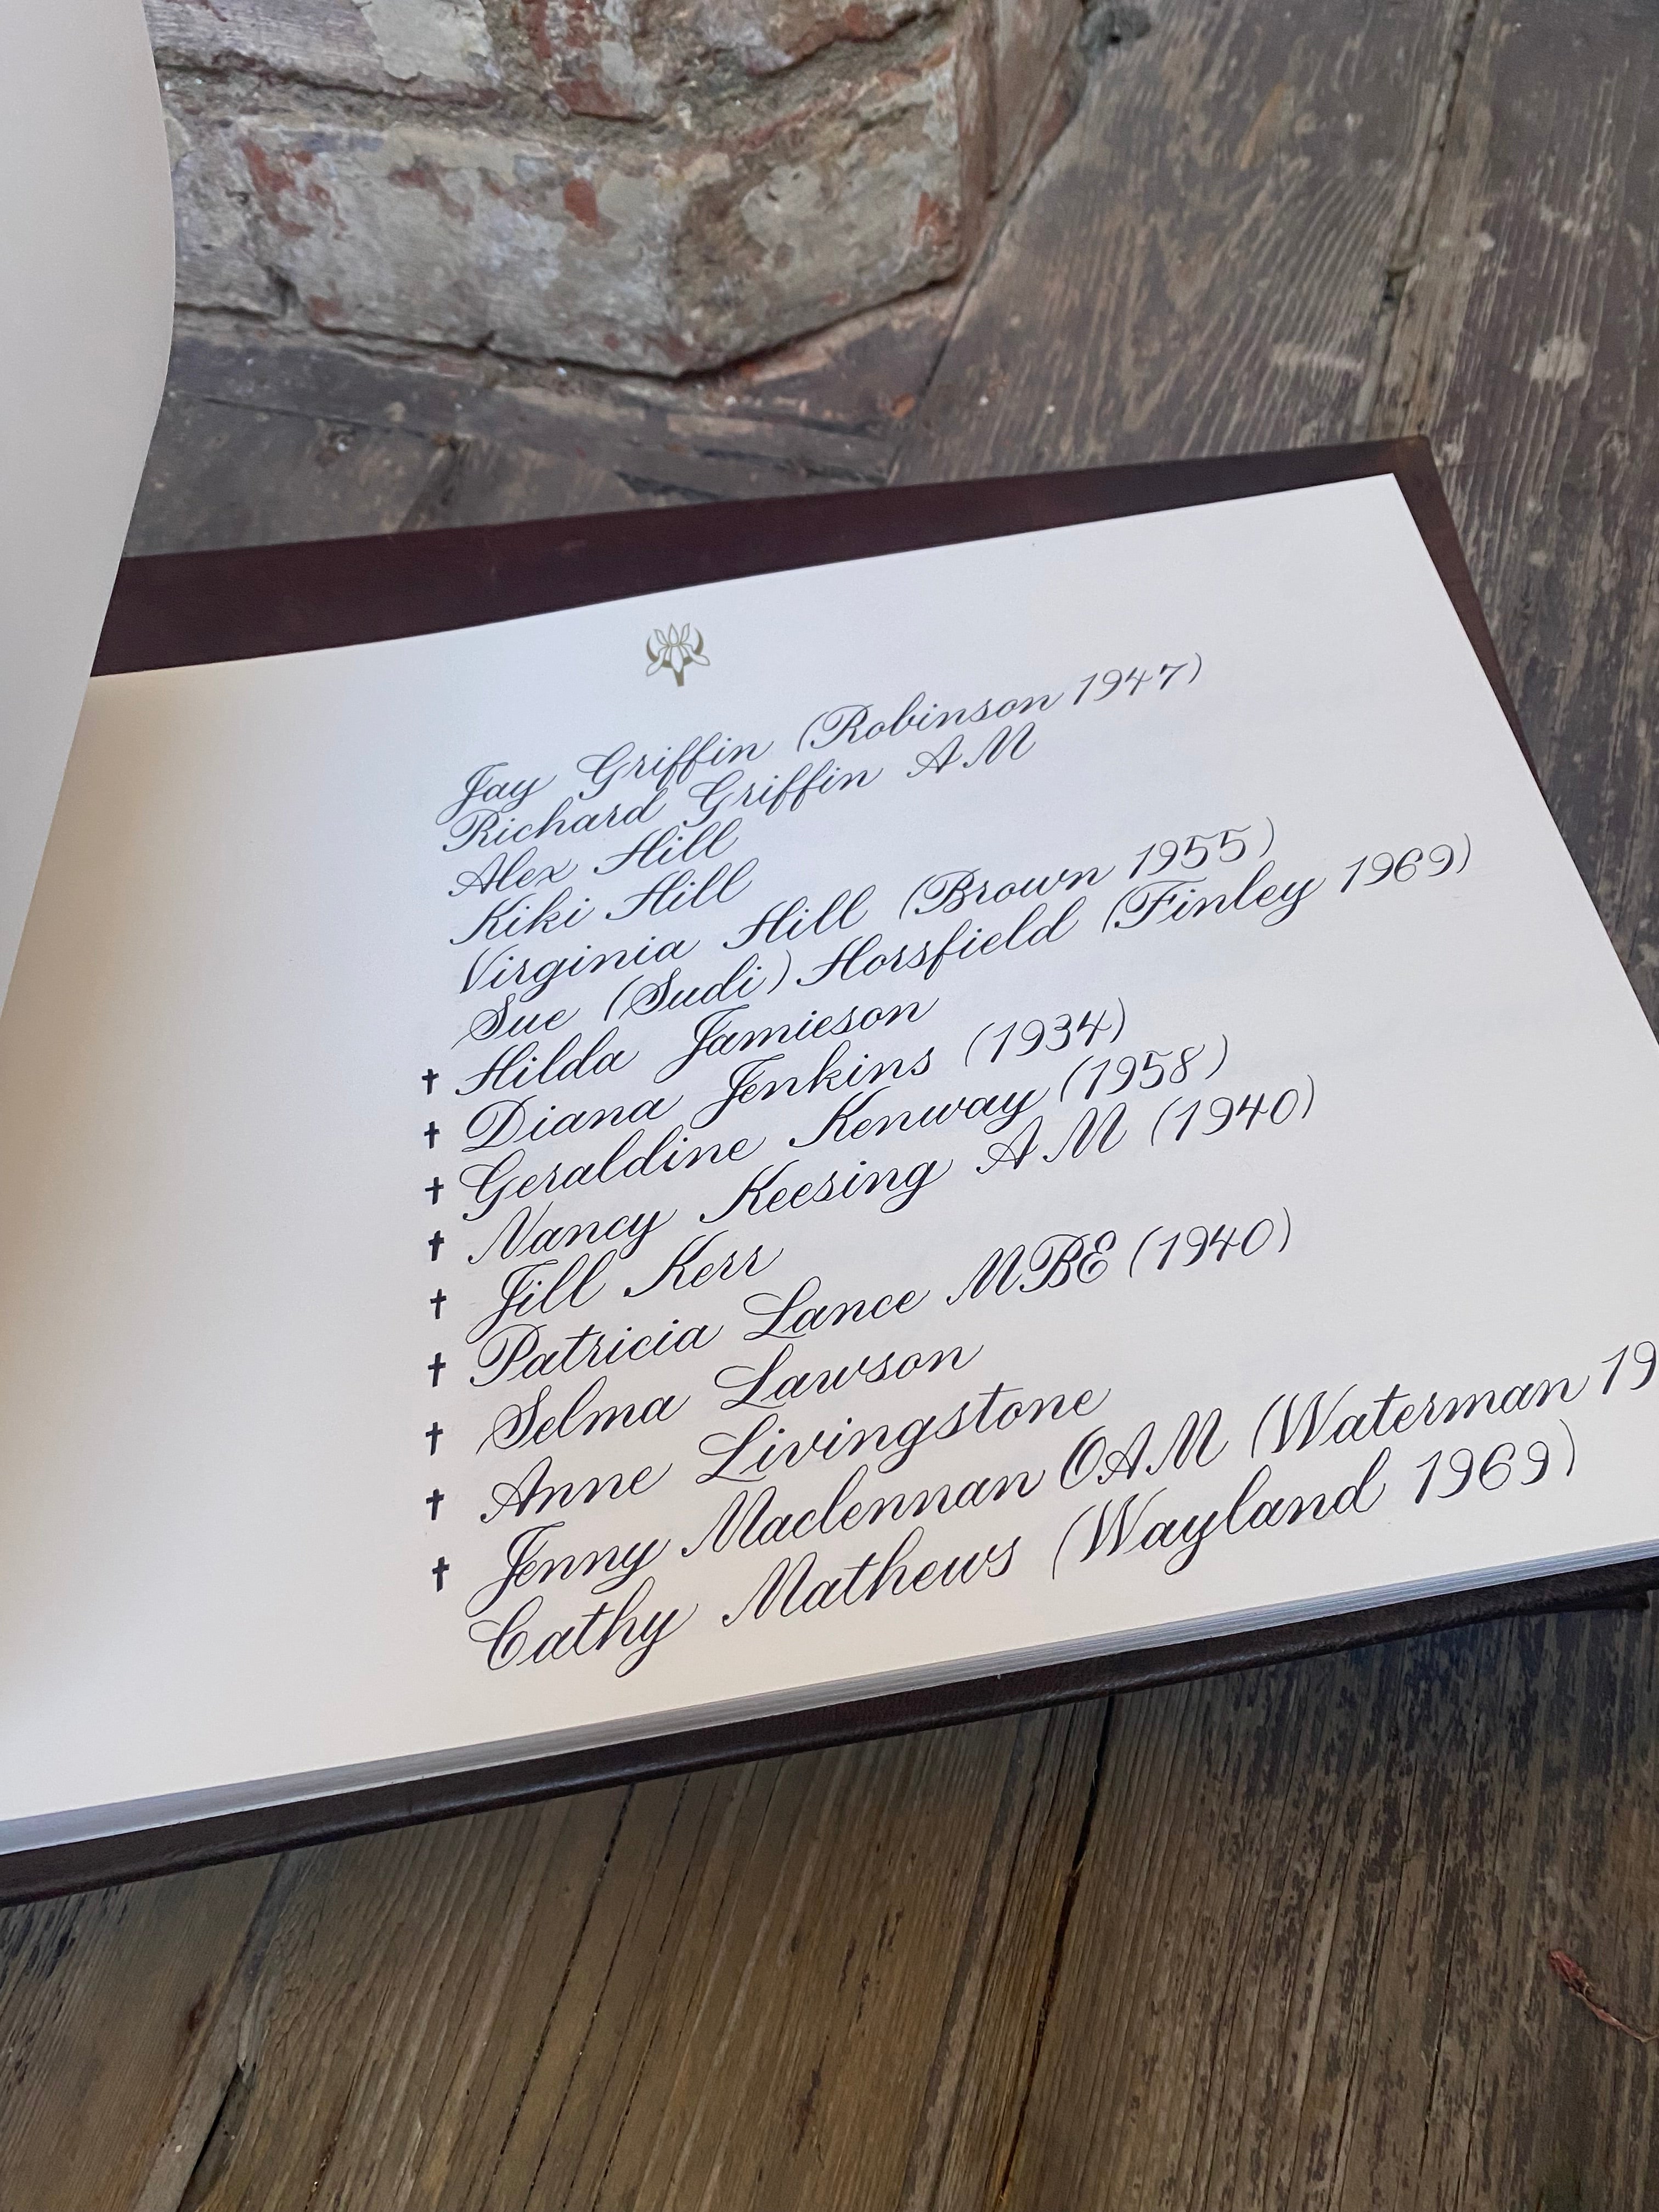 Jay Griffin (Robinson 1947)
Richard Griffin AM
Alex Hill
Kiki Hill
Virginia Hill (Brown 1955)
Sue (Sudi) Horsfield (Finley 1969)
† Hilda Jamieson
† Diana Jenkins (1934)
† Geraldine Kenway (1958)
† Nancy Keesing AM (1940)
† Jill Kerr
† Patricia Lance MBE (1940)
† Selma Lawson
† Anne Livingstone
† Jenny Maclennan OAM (Waterman 19
Cathy Mathews (Wayland 1969)